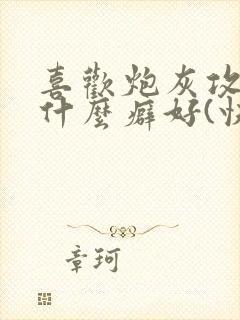 喜歡炮灰攻
什麼癖好(快
章珂